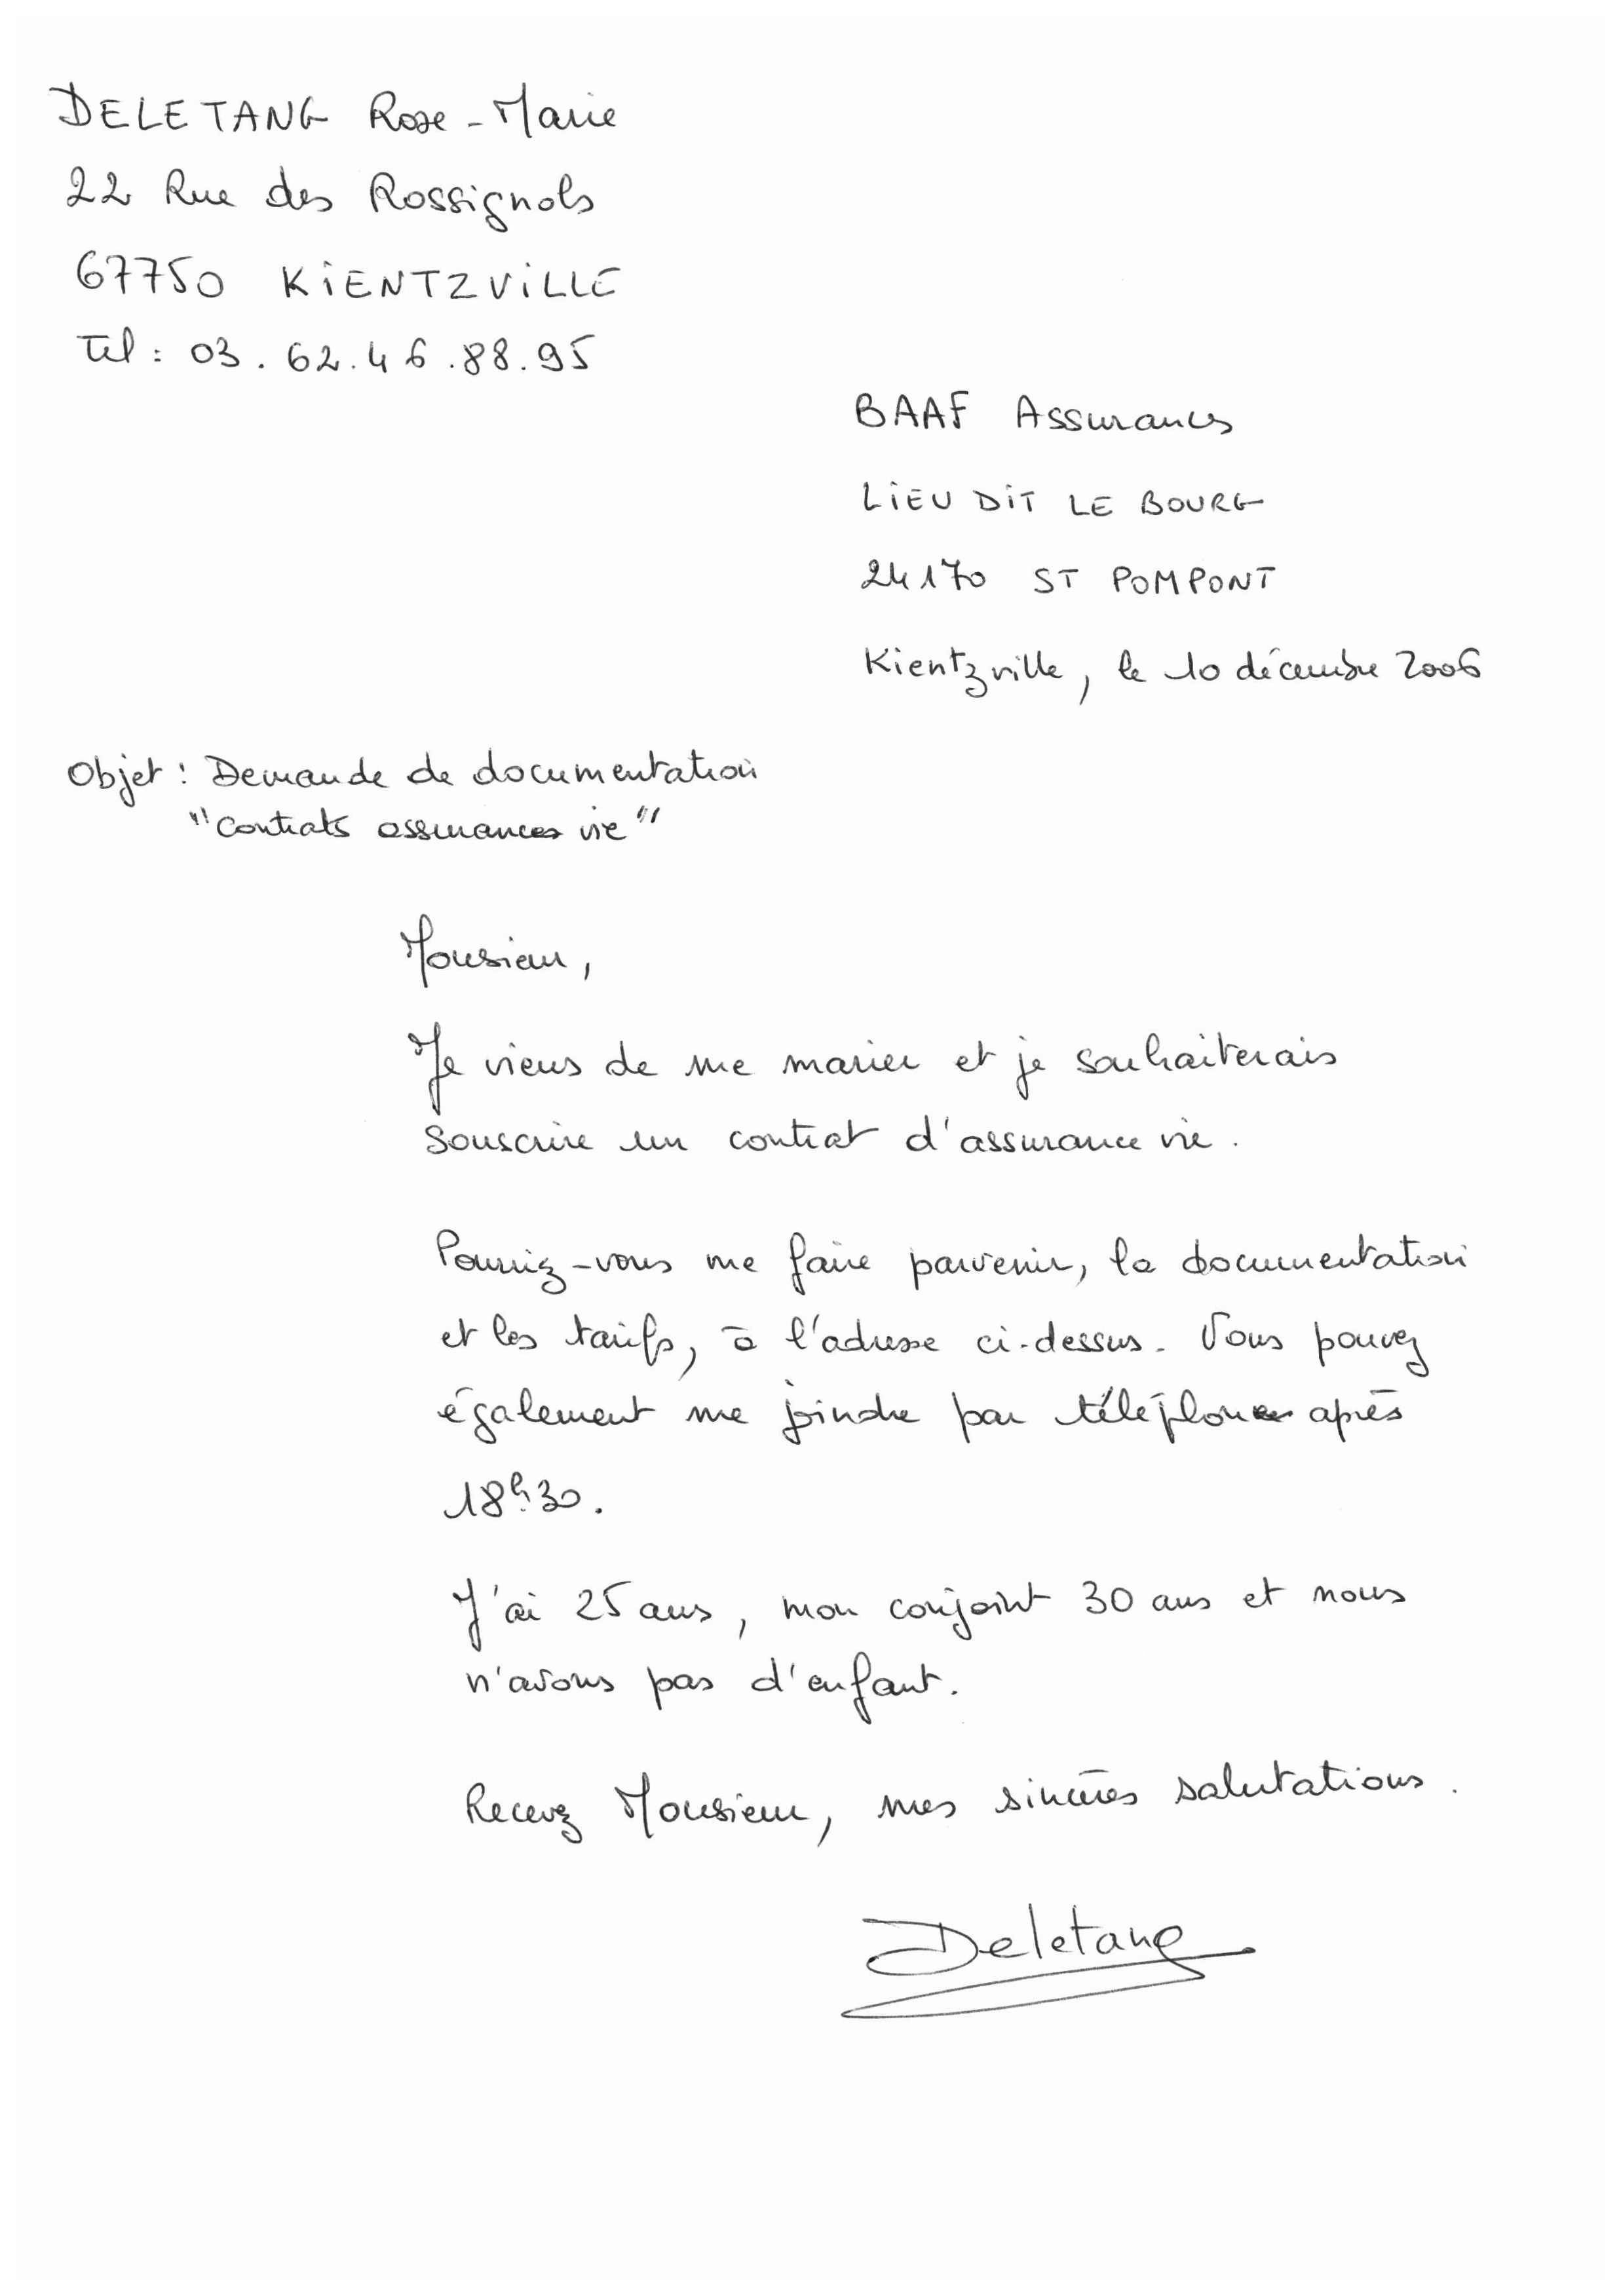 DELETANG Rose-Marie
22 Rue des Rossignols
67750 KIENTZVILLE
Tél : 03.62.46.88.95
BAAF Assurances
LIEU DIT LE BOURG
24170 ST POMPONT
Kientzville, le 10 décembre 2006
Objet : Demande de documentation
"Contrats assurances vie"
Monsieur,
Je viens de me marier et je souhaiterais
souscrire un contrat d'assurance vie.
Pourriez-vous me faire parvenir, la documentation
et les tarifs, à l'adresse ci-dessus. Vous pouvez
également me joindre par téléphone après
18h30.
J'ai 25 ans, mon conjoint 30 ans et nous
n'avons pas d'enfant.
Recevez Monsieur, mes sincères salutations.
Deletang